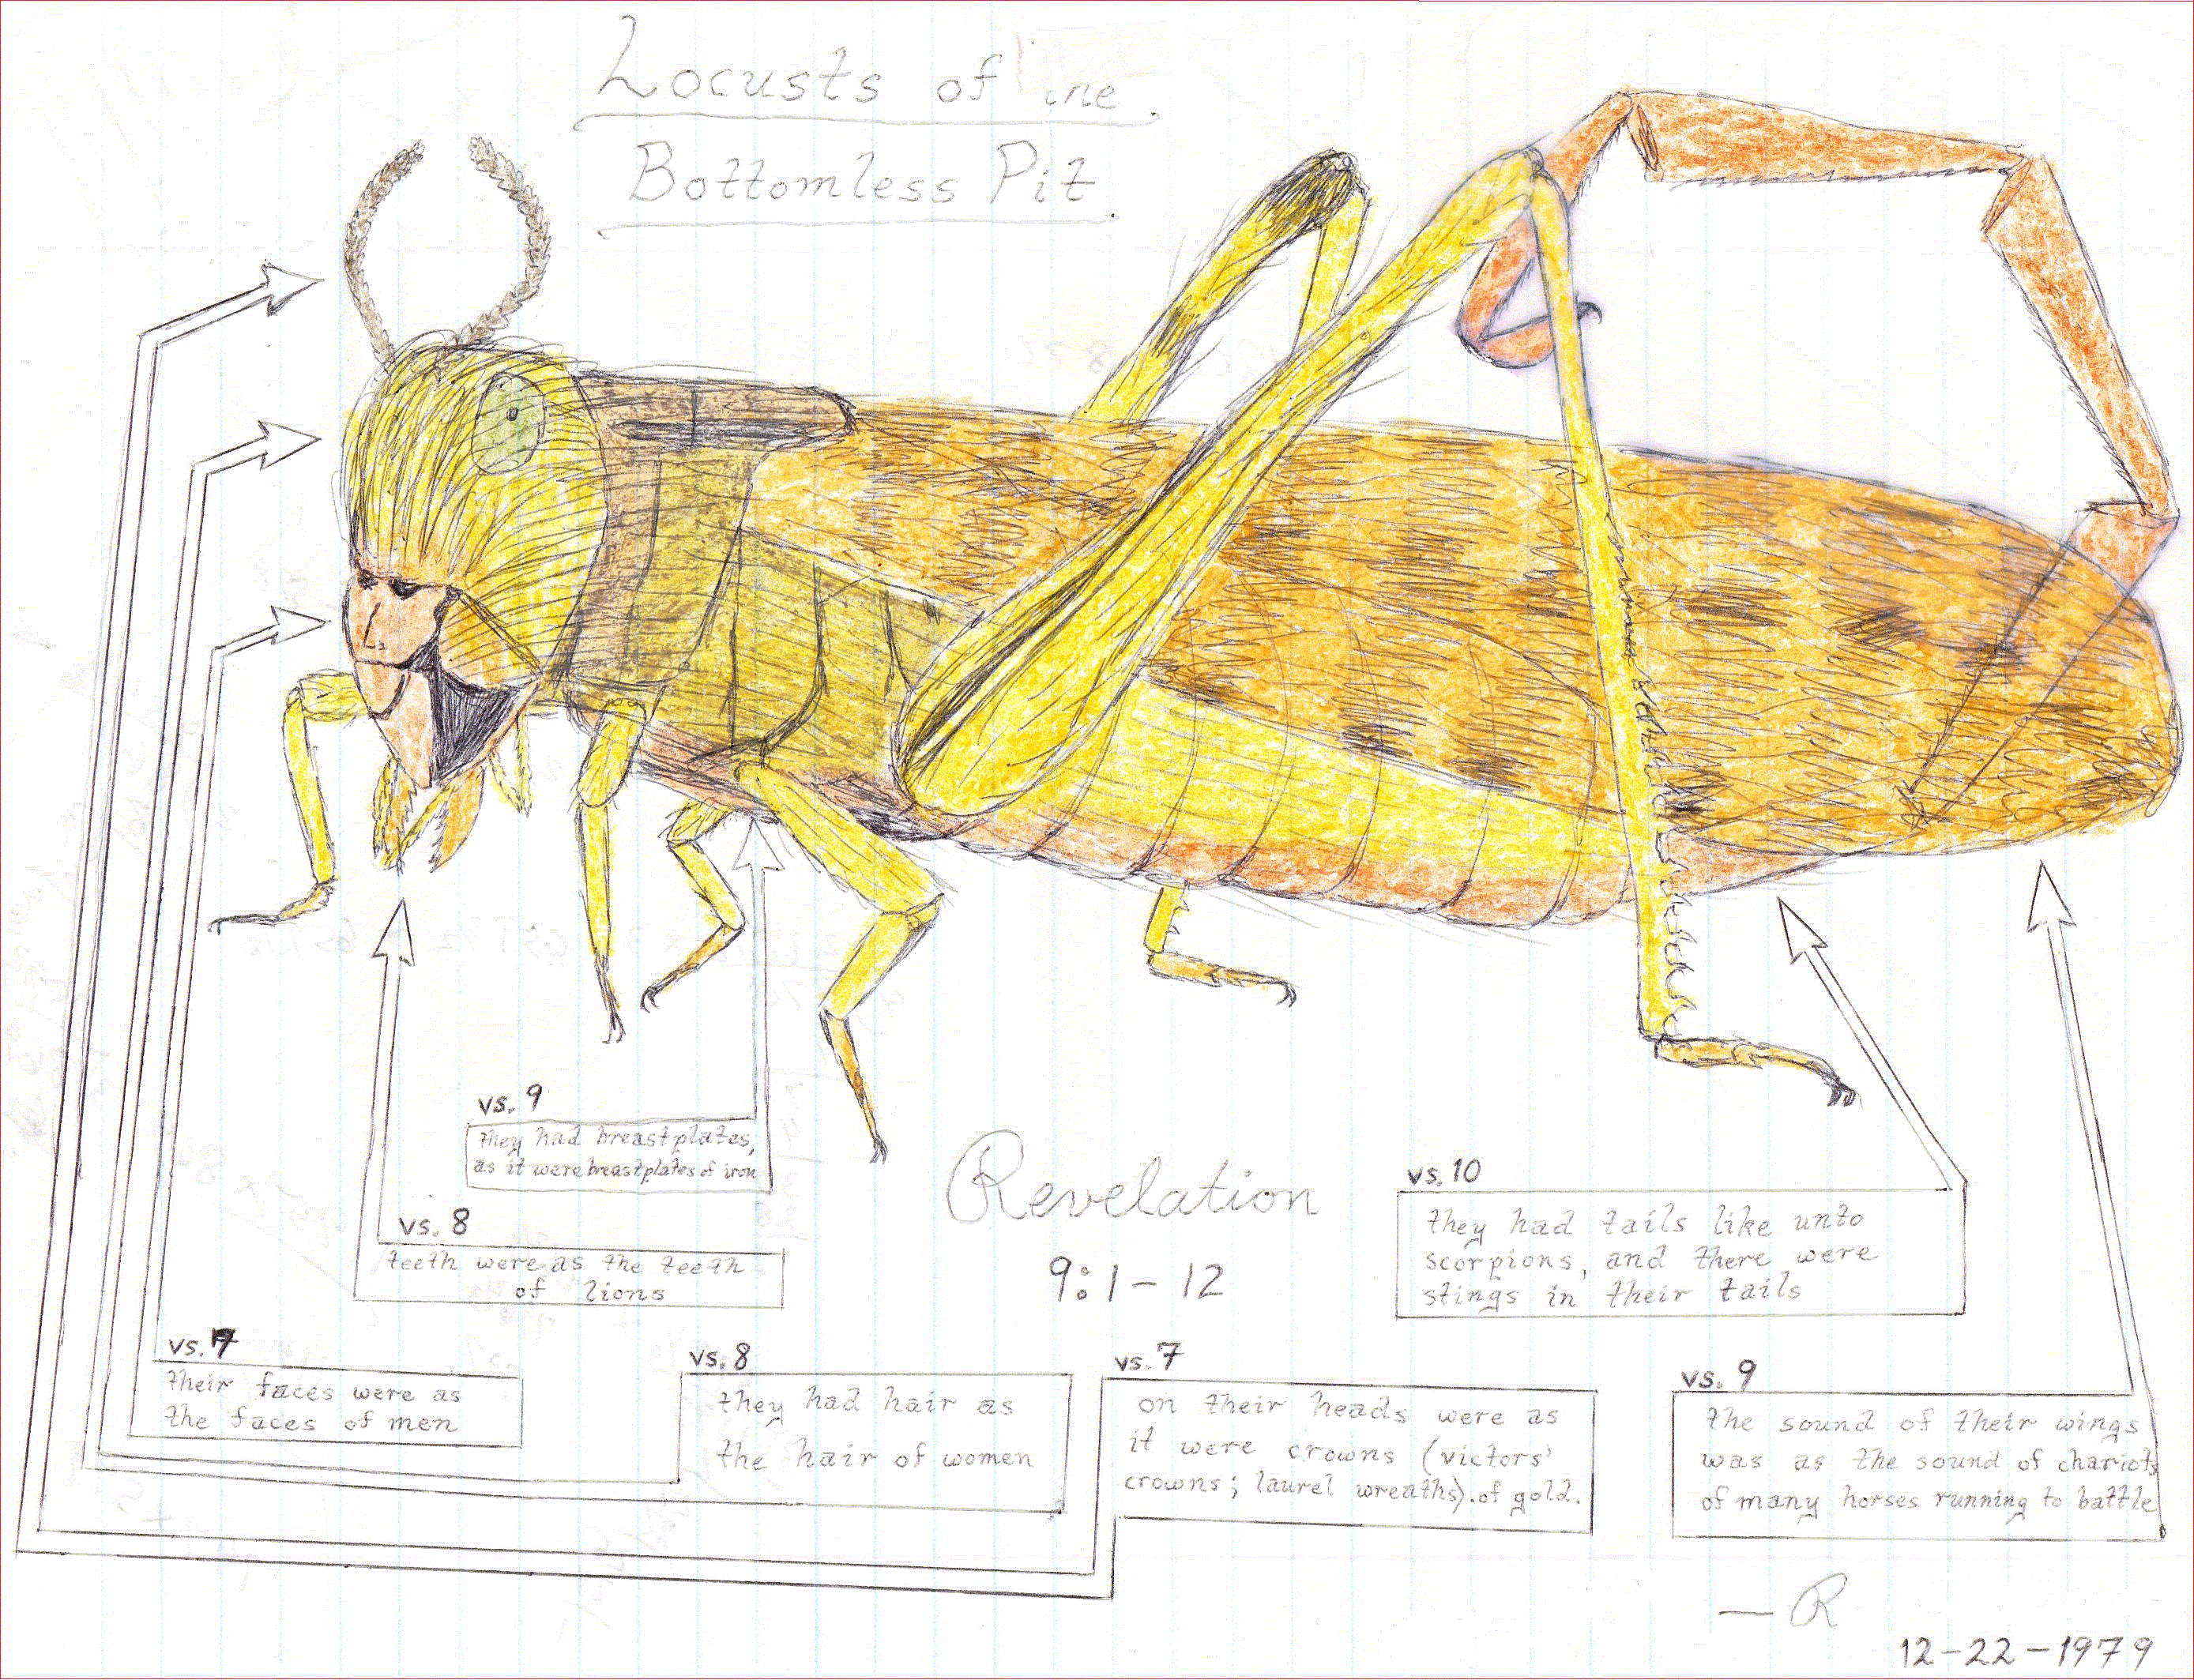 Locusts of the
Bottomless Pit
vs. 9
they had breastplates,
as it were breastplates of iron
vs. 8
teeth were as the teeth
of lions
Revelation
9:1-12
vs. 10
they had tails like unto
scorpions, and there were
stings in their tails
vs. 7
their faces were as
the faces of men
vs. 8
they had hair as
the hair of women
vs. 7
on their heads were as
it were crowns (victors'
crowns; laurel wreaths).of gold.
vs. 9
the sound of their wings
was as the sound of chariots
of many horses running to battle
— R
12-22-1979